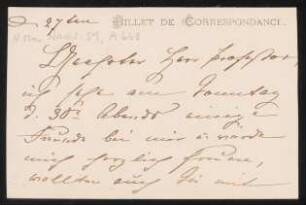 27ten BILLET DE CORRESPONDANCE.
Verehrter Herr Professor,
ich sehe am Sonntag
d. 30t. Abends einige
Freunde bei mir u. würde
mich herzlich freuen,
wollten auch Sie mit